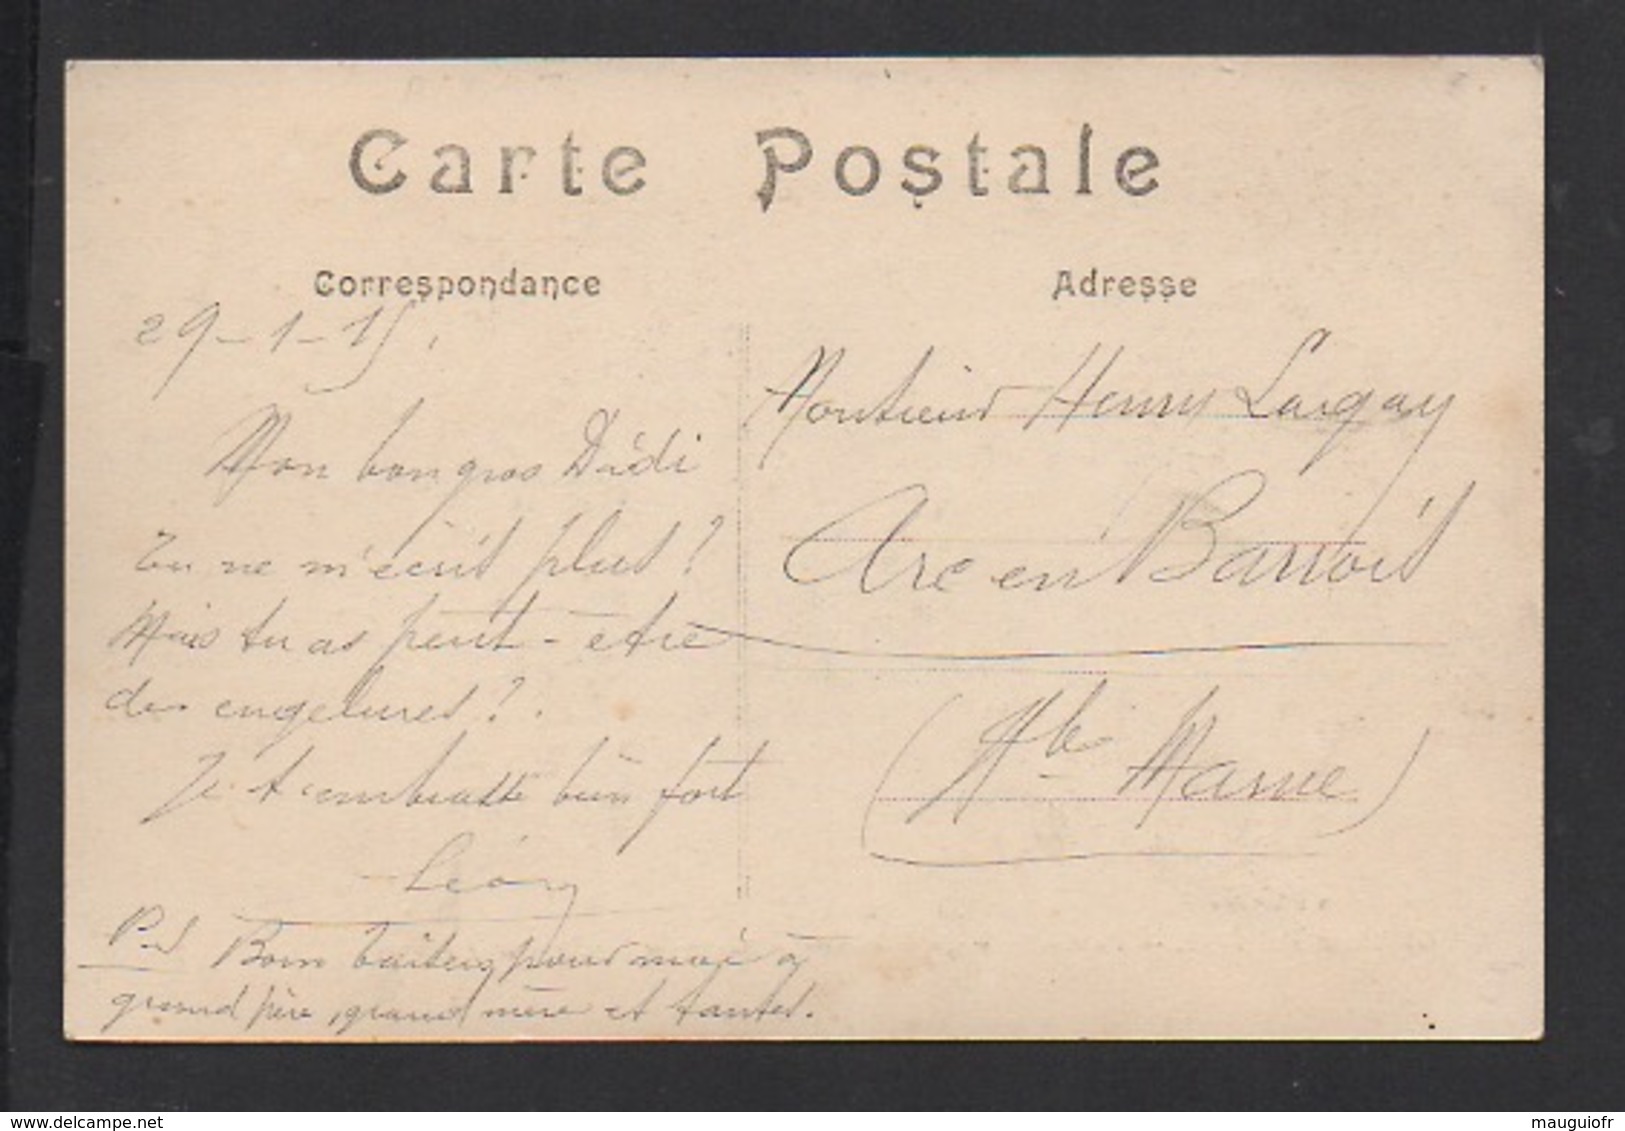 Carte Postale
Correspondance
Adresse
29-1-15.
Mon bon gros Dédi
Tu ne m'écrit plus?
Mais tu as peut-être
des engelures?.
Je t'embrasse bien fort
Léon
P.S Bons baisers pour moi à
grand père, grand mère et tantes.
Monsieur Henry Largay
Arc en Barrois
(Hte Marne)
mauguiofr